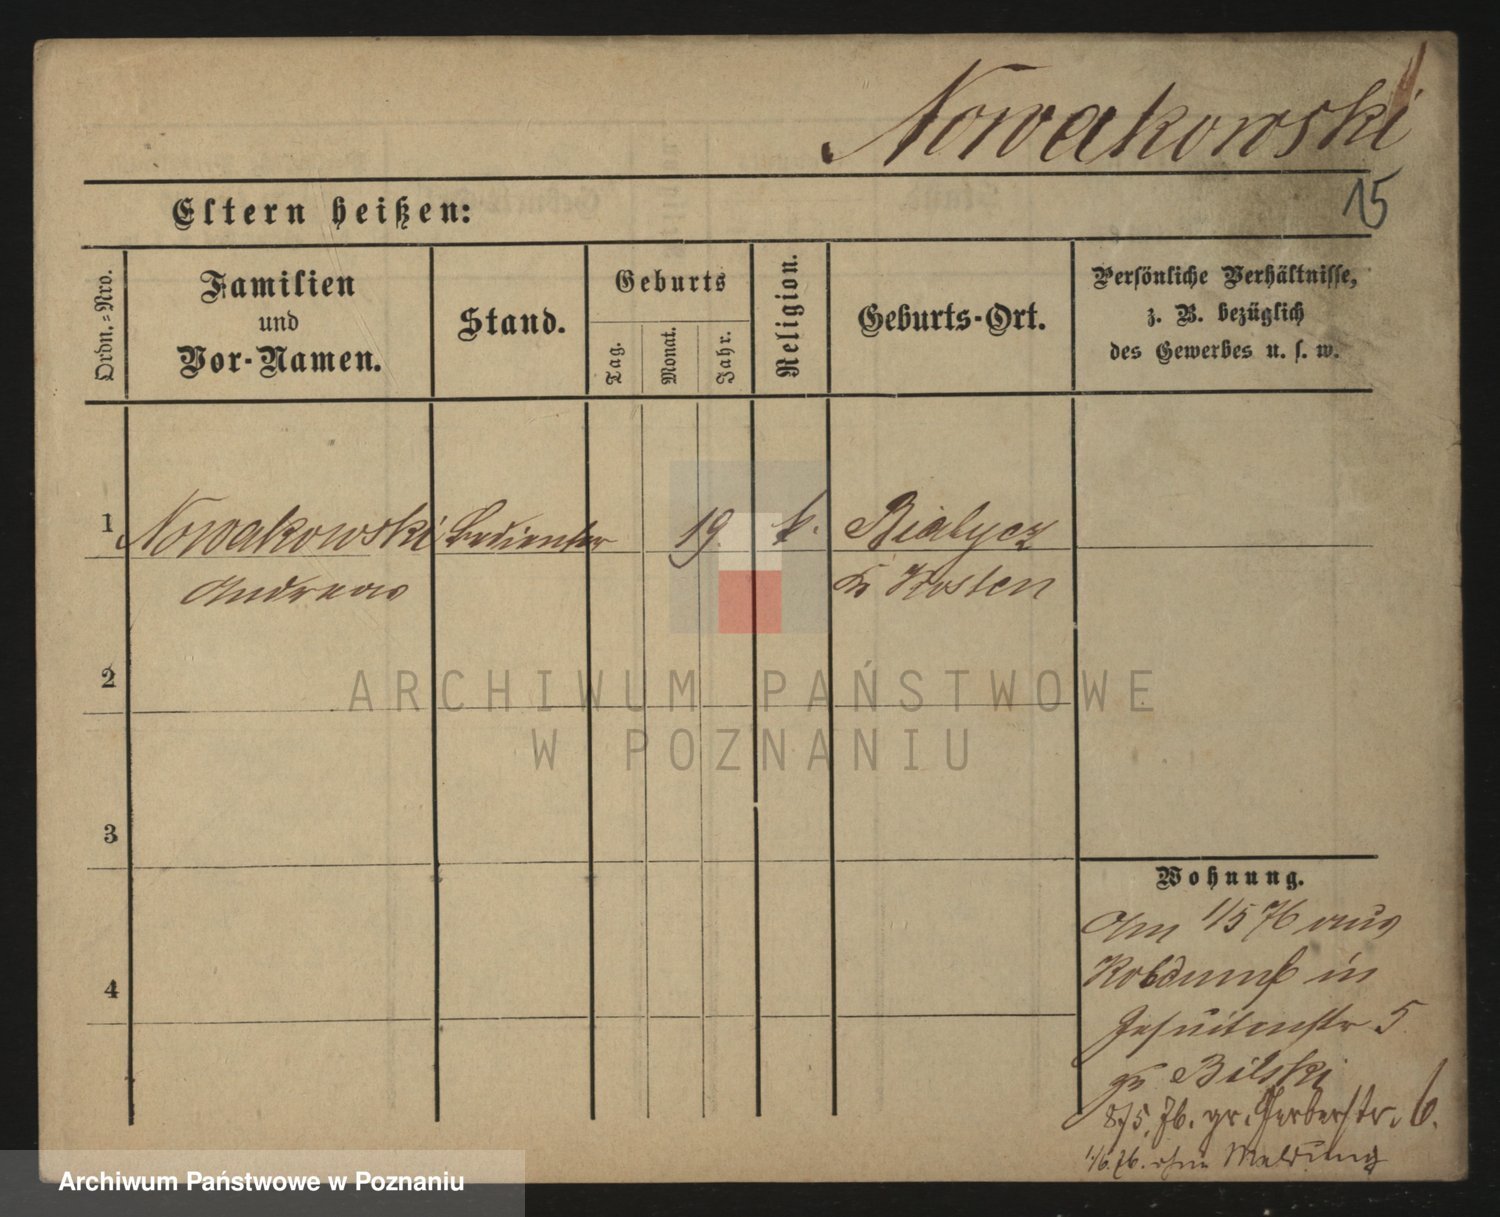 Nowakowski
15
Eltern heißen:
Ordn.-Nro.
Familien
und
Vor-Namen.
Stand.
Geburts
Tag.
Monat.
Jahr.
Religion.
Geburts-Ort.
Persönliche Verhältnisse,
z. B. bezüglich
des Gewerbes u. s. w.
1 Nowakowski Bedienter 19 k. Bialycz
Andreas Kr Kosten
2
3
4
Wohnung.
Am 1/5 76 aus
in
Jesuitenstr 5
Bilski
8/5. 76. gr. Gerberstr. 6.
1/6. 76. ohne Meldung
ARCHIWUM PAŃSTWOWE
W POZNANIU
Archiwum Państwowe w Poznaniu